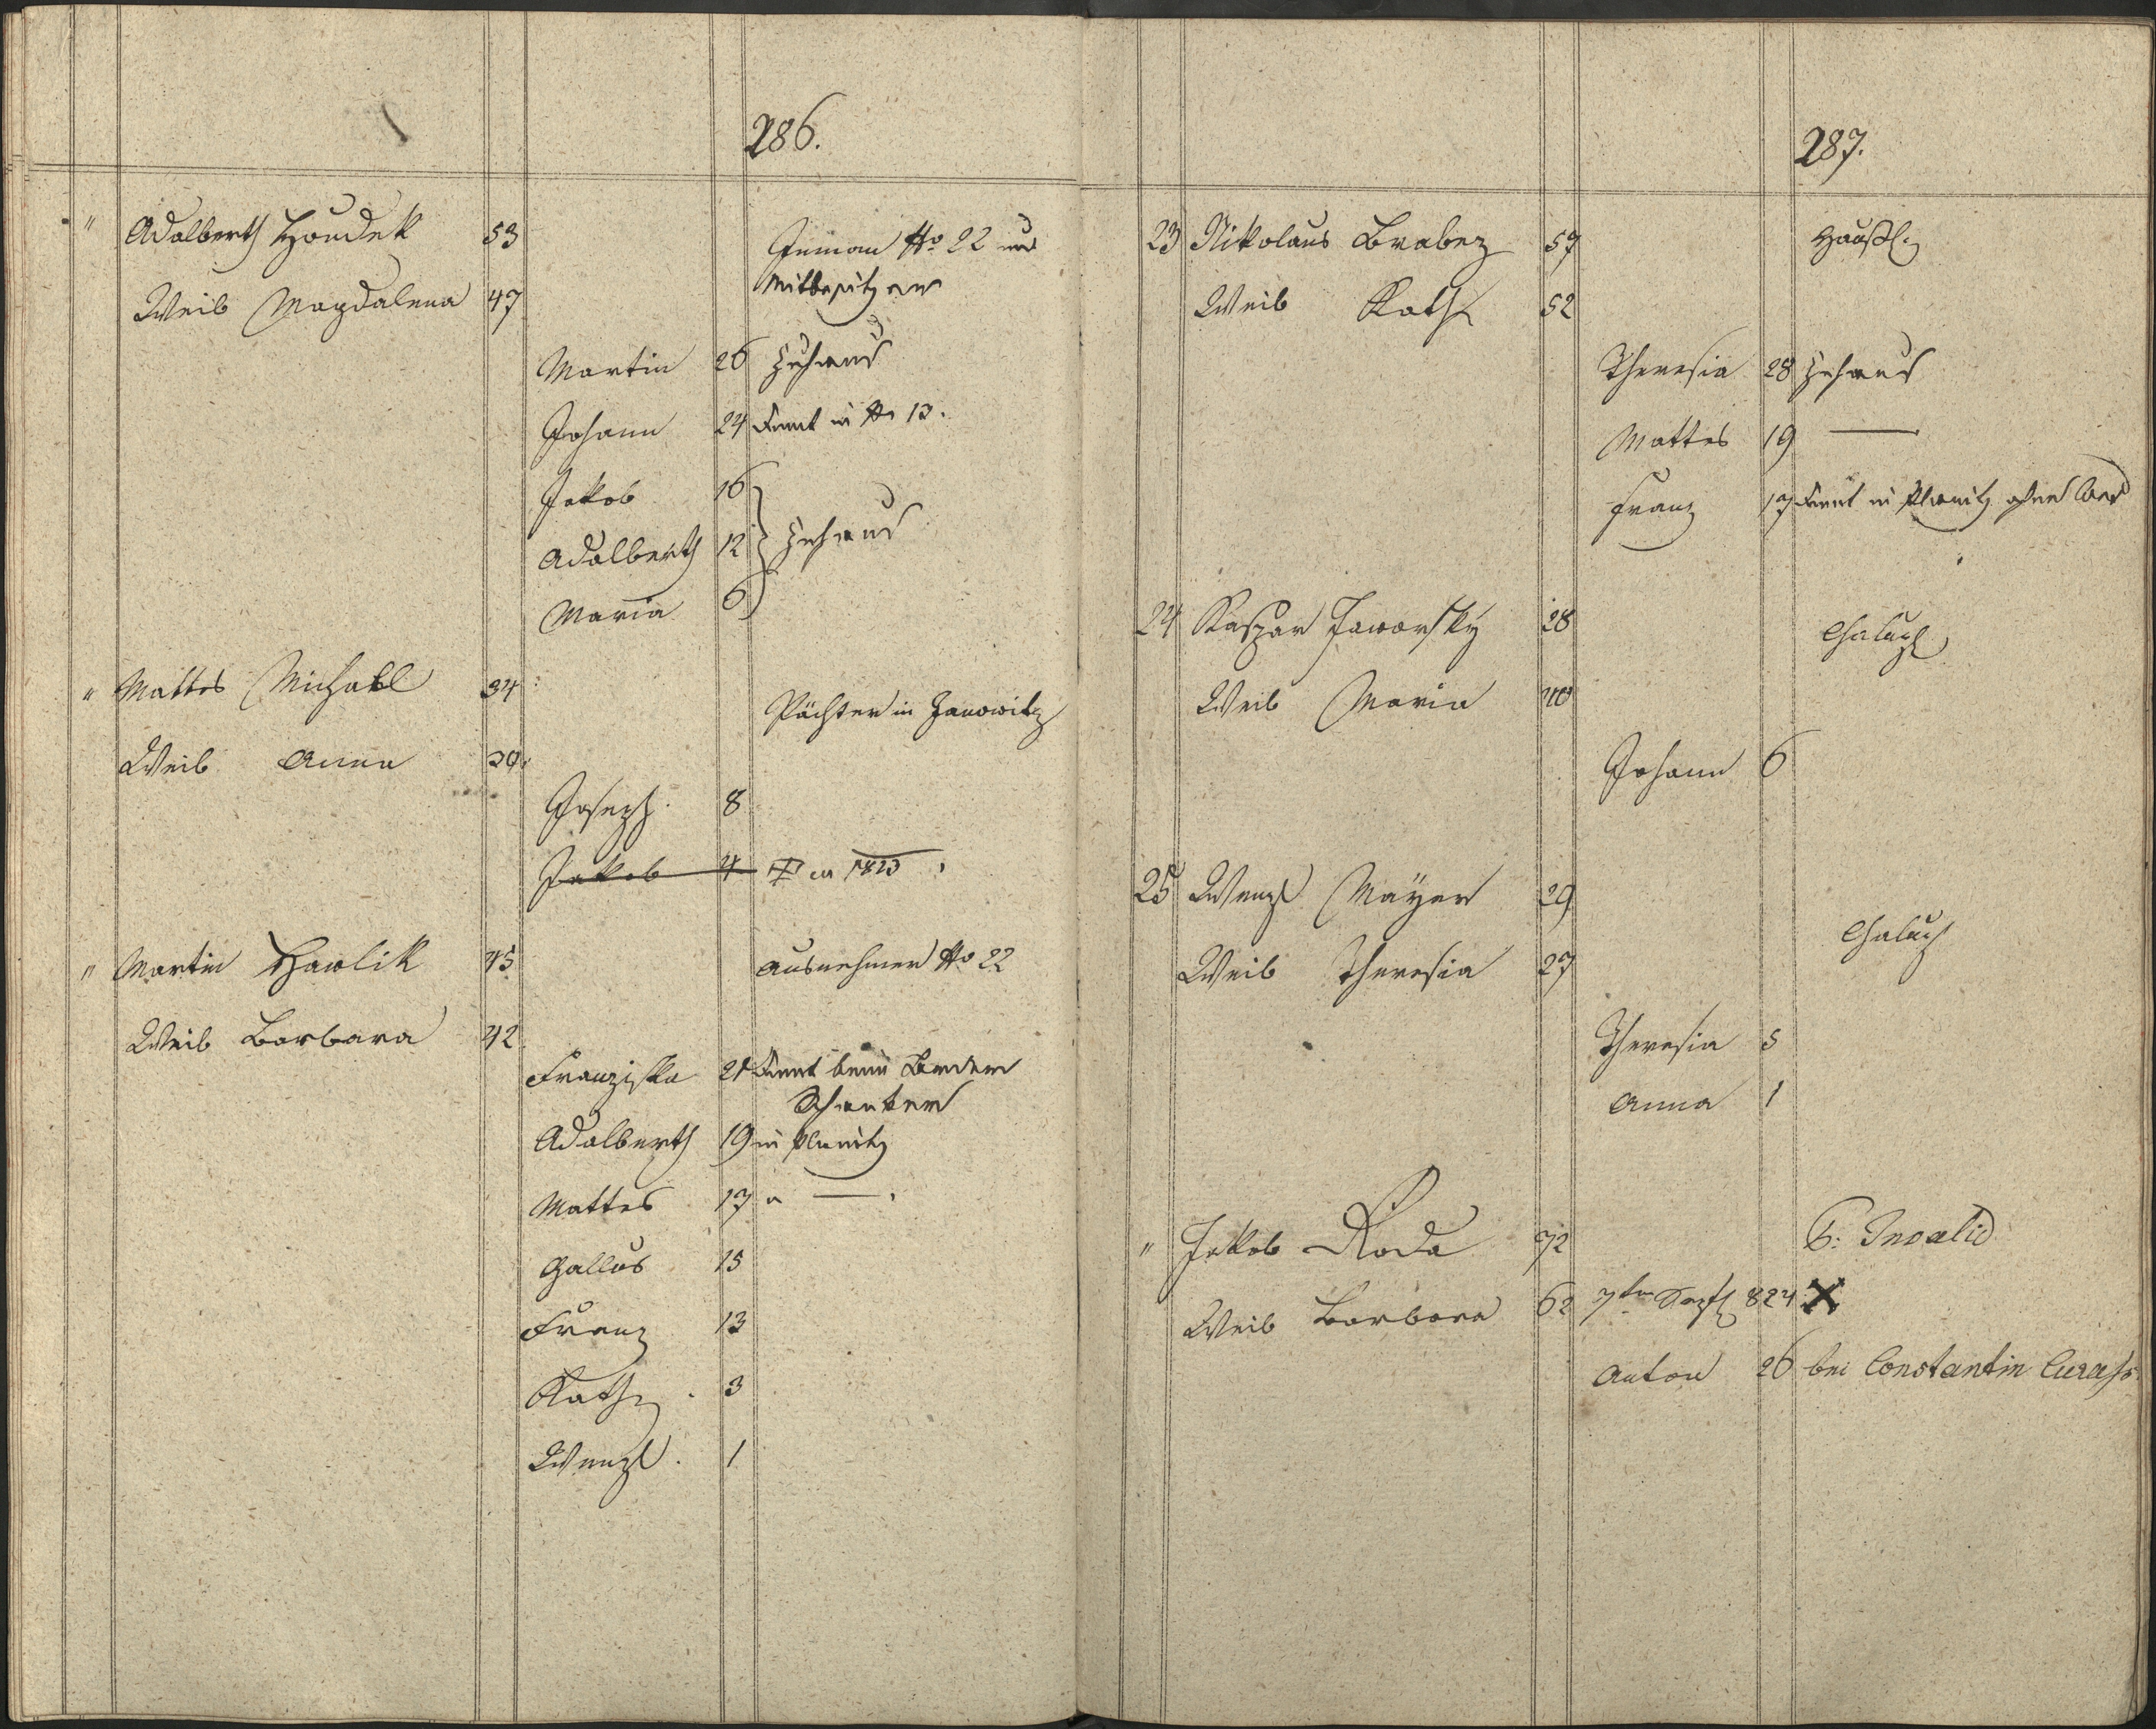 286.
" Adalberth Houdek 53
Inman No 22 und
Mitbesitzer
Weib Magdalena 47
Martin 26 Zuhaus
Johann 24 dient in No 13.
Jakob 16
Adalberth 12 Zuhaus
Maria 6
" Mattes Michael 34
Pächter in Janowitz
Weib Anna 30.
Joseph. 8
Jakob 4 1823
" Martin Hawlik 45 Ausnehmer No 22
Weib Barbara 42
Franziska 21 dient beim
Adalberth 19 in Planitz
Mattes 17 " — .
Gallus 15
Franz 13
Kath. 3
Wenzl. 1
287.
23 Nikolaus Brabez 57 Häusl.
Weib Kath. 52
Theresia 28 Zuhaus
Mattes 19 —
Franz 17 dient in Planitz ohne
24 Kaspar Jaworsky 28
Chalup
Weib Maria 40
Johann 6
25 Wenzl Mayer 29
Chalup
Weib Theresia 27
Theresia 5
Anna 1
" Jakob Roda 72 Invalid
Weib Barbara 62 7ten Sept 824 X
Anton 26 bei Constantin Curass.